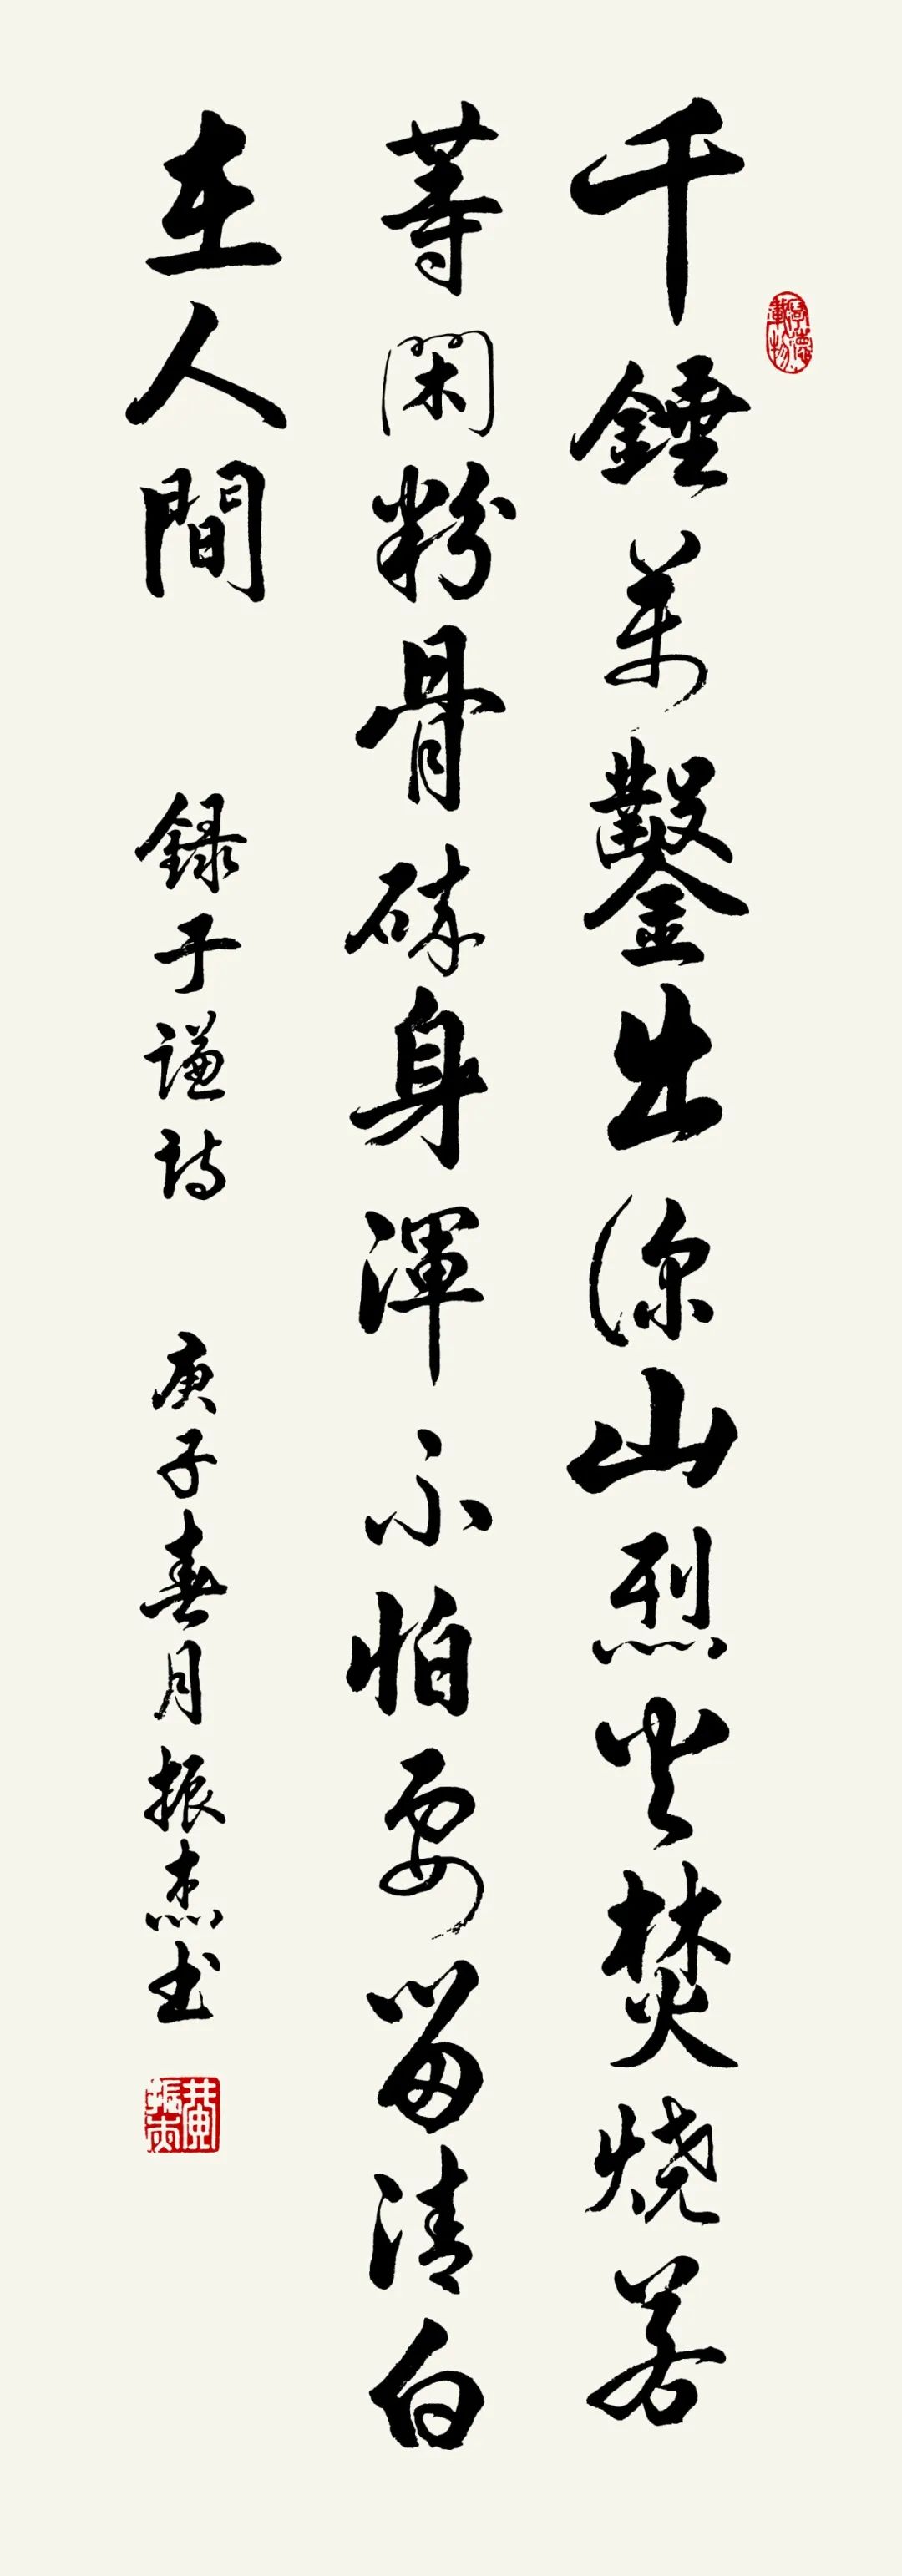 千錘萬鑿出深山烈火焚燒若
等閑粉骨碎身渾不怕要留清白
在人間
録于謙詩
庚子春月振杰书
厚德載物